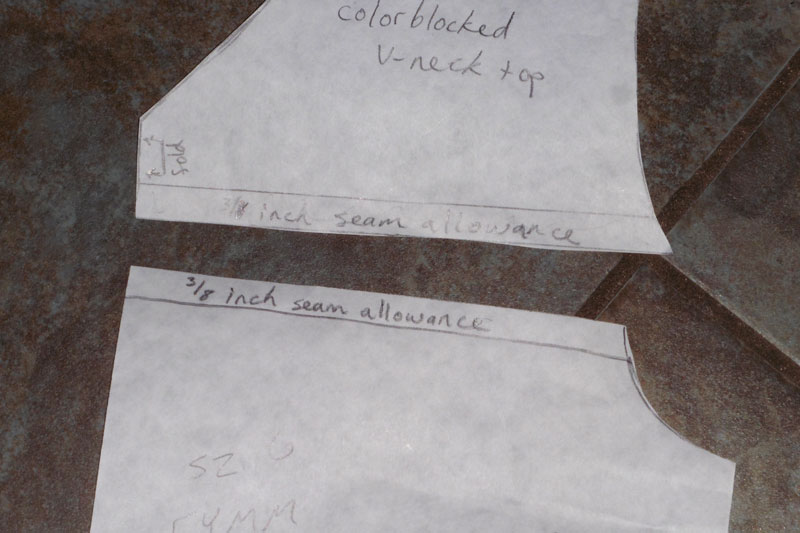 colorblocked
V-neck top
fold
3/8 inch seam allowance
3/8 inch seam allowance
SZ